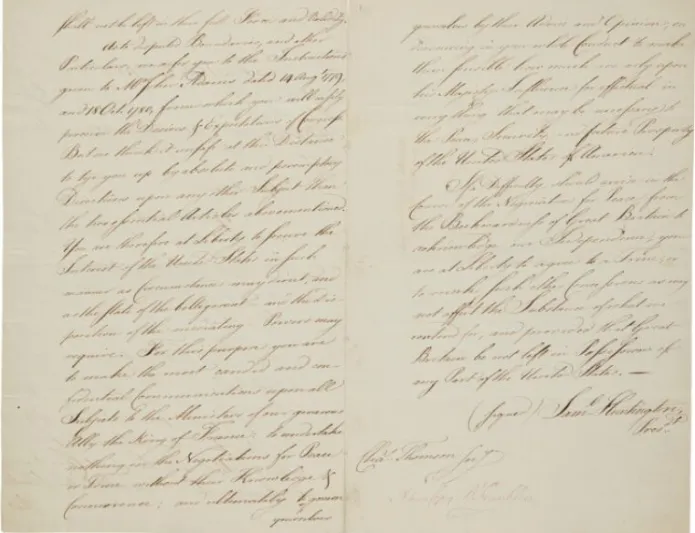 shall not be left in their full Force and Validity.
As to disputed Boundaries, and other
Particulars, we refer you to the Instructions
given to Mr John Adams dated 14 Aug 1779,
and 18 Oct. 1780, from which you will easily
perceive the Desires & Expectations of Congress
But we think it unsafe at this Distance
to tye you up by absolute and peremptory
Directions upon any other Subject than
the two essential Articles abovementioned.
You are therefore at Liberty to secure the
Interest of the United States in such
manner as Circumstances may direct, and
as the State of the belligerent and the dis-
position of the mediating Powers may
require. For this purpose you are
to make the most candid and con-
fidential Communications upon all
Subjects to the Ministers of our generous
Ally the King of France; to undertake
nothing in the Negotiations for Peace
or Truce without their Knowledge &
Concurrence; and ultimately to govern
yourselves
yourselves by their Advice and Opinion,
endeavouring in your whole Conduct to make
them sensible how much we rely upon
his Majesty's Influence for effectual in
every thing that may be necessary to
the Peace, Security, or future Prosperity
of the United States of America.
If a Difficulty should arise in the
Course of the Negotiation for Peace from
the Backwardness of Great Britain to
acknowledge our Independence, you
are at Liberty to agree to a Truce, or
to make such other Concessions as may
not affect the Substance of what we
contend for, and provided that Great
Britain be not left in Possession of
any Part of the United States. —
(signed) Saml. Huntington,
Presdt
Chas. Thomson Secy